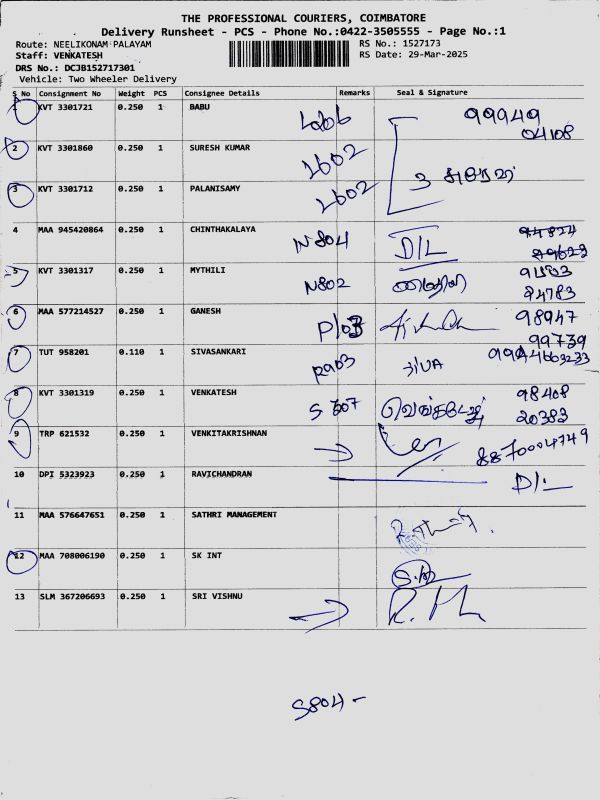 THE PROFESSIONAL COURIERS, COIMBATORE
Delivery Runsheet - PCS - Phone No.:0422-3505555 - Page No.:1
Route: NEELIKONAM PALAYAM
RS No.: 1527173
Staff: VENKATESH
RS Date: 29-Mar-2025
DRS No.: DCJB152717301
Vehicle: Two Wheeler Delivery
S No Consignment No Weight PCS Consignee Details Remarks Seal & Signature
1 KVT 3301721 0.250 1 BABU 99949
04108
2 KVT 3301860 0.250 1 SURESH KUMAR L602
3 KVT 3301712 0.250 1 PALANISAMY L602 3
4 MAA 945420864 0.250 1 CHINTHAKALAYA N804 D/L
5 KVT 3301317 0.250 1 MYTHILI N802 மைதிலி
94783
6 MAA 577214527 0.250 1 GANESH P103 98947
99739
7 TUT 958201 0.110 1 SIVASANKARI
8 KVT 3301319 0.250 1 VENKATESH S 307 வெங்கடேஷ் 98408
20383
9 TRP 621532 0.250 1 VENKITAKRISHNAN 8870004749
10 DPI 5323923 0.250 1 RAVICHANDRAN D/L
11 MAA 576647651 0.250 1 SATHRI MANAGEMENT
12 MAA 708006190 0.250 1 SK INT
13 SLM 367206693 0.250 1 SRI VISHNU
S804 -